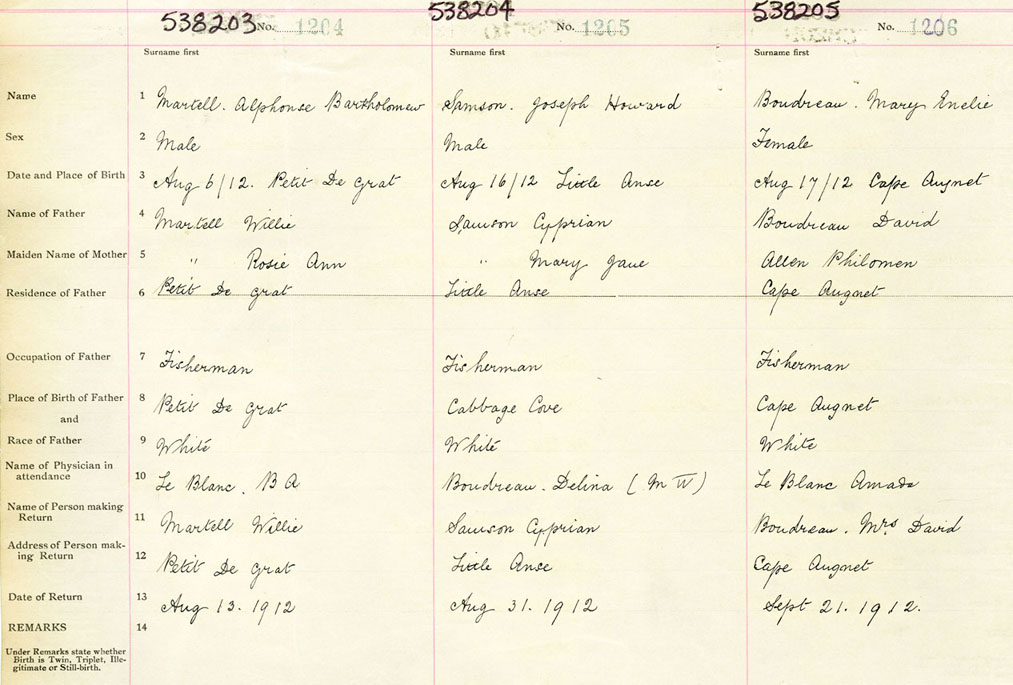 538203 No. 1204 538204 No. 1205 538205 No. 1206
Surname first Surname first Surname first
Name 1 Martell. Alphonse Bartholomew Samson. Joseph Howard Boudreau. Mary Enelie
Sex 2 Male Male Female
Date and Place of Birth 3 Aug 6/12. Petit De Grat Aug 16/12 Little Anse Aug 17/12 Cape Augnet
Name of Father 4 Martell Willie Samson Cyprian Boudreau David
Maiden Name of Mother 5 " Rosie Ann " Mary Jane Allen Philomen
Residence of Father 6 Petit De Grat Little Anse Cape Augnet
Occupation of Father 7 Fisherman Fisherman Fisherman
Place of Birth of Father 8 Petit De Grat Cabbage Cove Cape Augnet
and
Race of Father 9 White White White
Name of Physician in
attendance 10 Le Blanc. B A Boudreau. Delina (M W) Le Blanc Amada
Name of Person making
Return 11 Martell Willie Samson Cyprian Boudreau. Mrs David
Address of Person mak-
ing Return 12 Petit De Grat Little Anse Cape Augnet
Date of Return 13 Aug 13. 1912 Aug 31. 1912 Sept 21. 1912.
REMARKS 14
Under Remarks state whether
Birth is Twin, Triplet, Ille-
gitimate or Still-birth.